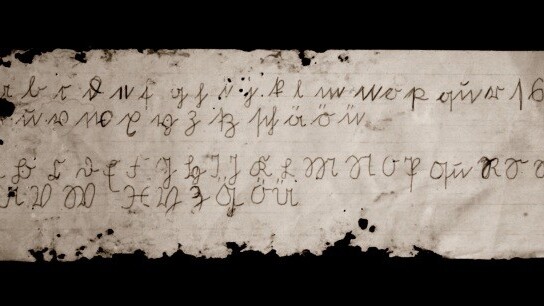 a b c d e f g h i j k l m n o p qu r ſ s
u v w x y z tz sch ä ö ü
B C D E F G H I J K L M N O P Qu R S
U V W X Y Z Ä Ö Ü